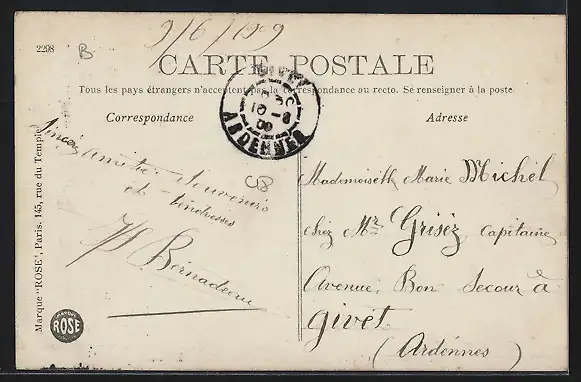 2298
B
9/6/09
CARTE POSTALE
Tous les pays étrangers n'acceptent pas la correspondance au recto. Se renseigner à la poste
Correspondance
Adresse
GIVET
10 -6
09
ARDENNES
Sincère amitié. Souvenirs
et tendresses
Bernadeau
CB
Mademoiselle Marie Michel
chez Mr Grisez Capitaine
Avenue, Bon Secour à
Givet
(Ardennes)
Marque "ROSE", Paris. 145, rue du Temple
ROSE